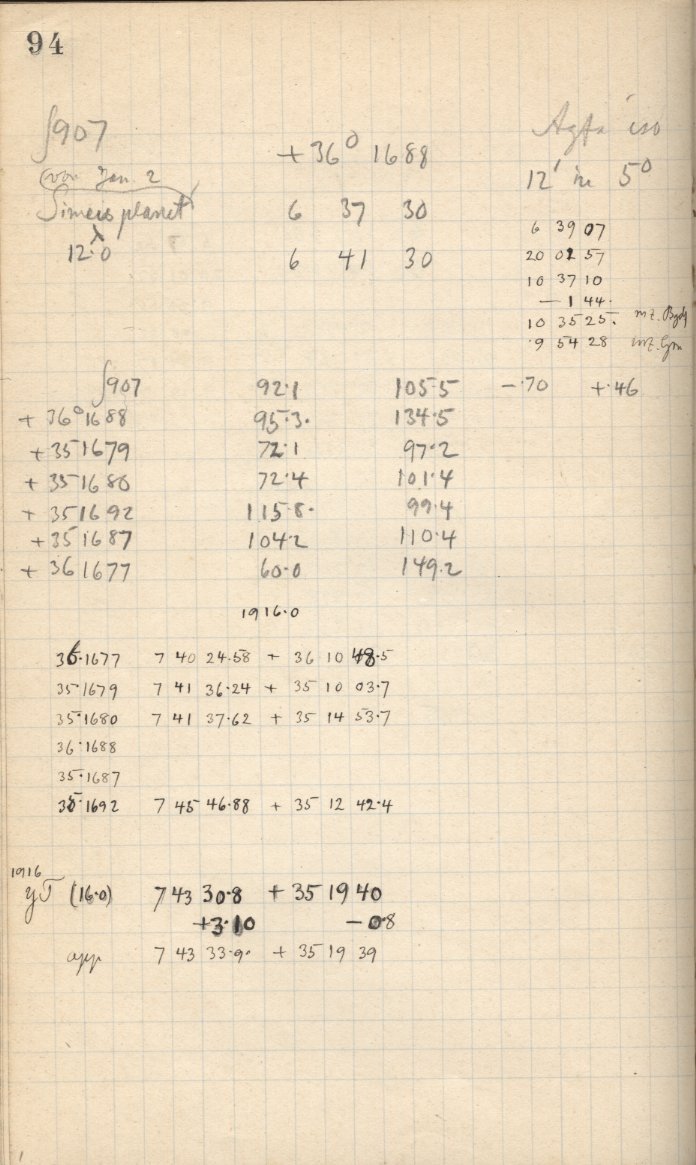 94
∫907
+36° 1688
Agfa iso
von Jan 2
12' in 5°
Simeis planet
6 37 30
12.0
6 41 30
6 39 07
20 02 57
10 37 10
— 1 44.
10 35 25. mz.
9 54 28 mz. Gm
∫907 92.1 105.5 -.70 +.46
+ 36° 1688 95.3. 134.5
+ 35 1679 72.1 97.2
+ 35 1680 72.4 101.4
+ 35 1692 115.8. 99.4
+ 35 1687 104.2 110.4
+ 36 1677 60.0 149.2
1916.0
36.1677 7 40 24.58 + 36 10 48.5
35.1679 7 41 36.24 + 35 10 03.7
35.1680 7 41 37.62 + 35 14 53.7
36.1688
35.1687
35.1692 7 45 46.88 + 35 12 42.4
1916
(16.0) 7 43 30.8 + 35 19 40
+3.10 — 0.8
app 7 43 33.9. + 35 19 39